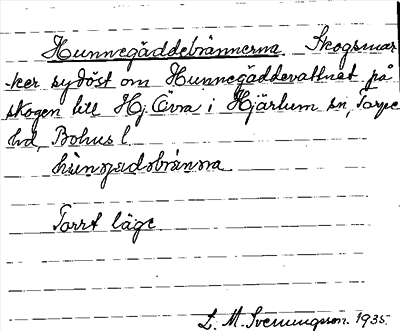 Hunnegäddebrännerna. Skogsmar-
ker sydöst om Hunnegäddevattnet på
skogen till Hj. Övra i Hjärtum sn, Torpe
hd, Bohus l.
Torrt läge
L. M. Svenungsson. 1935.